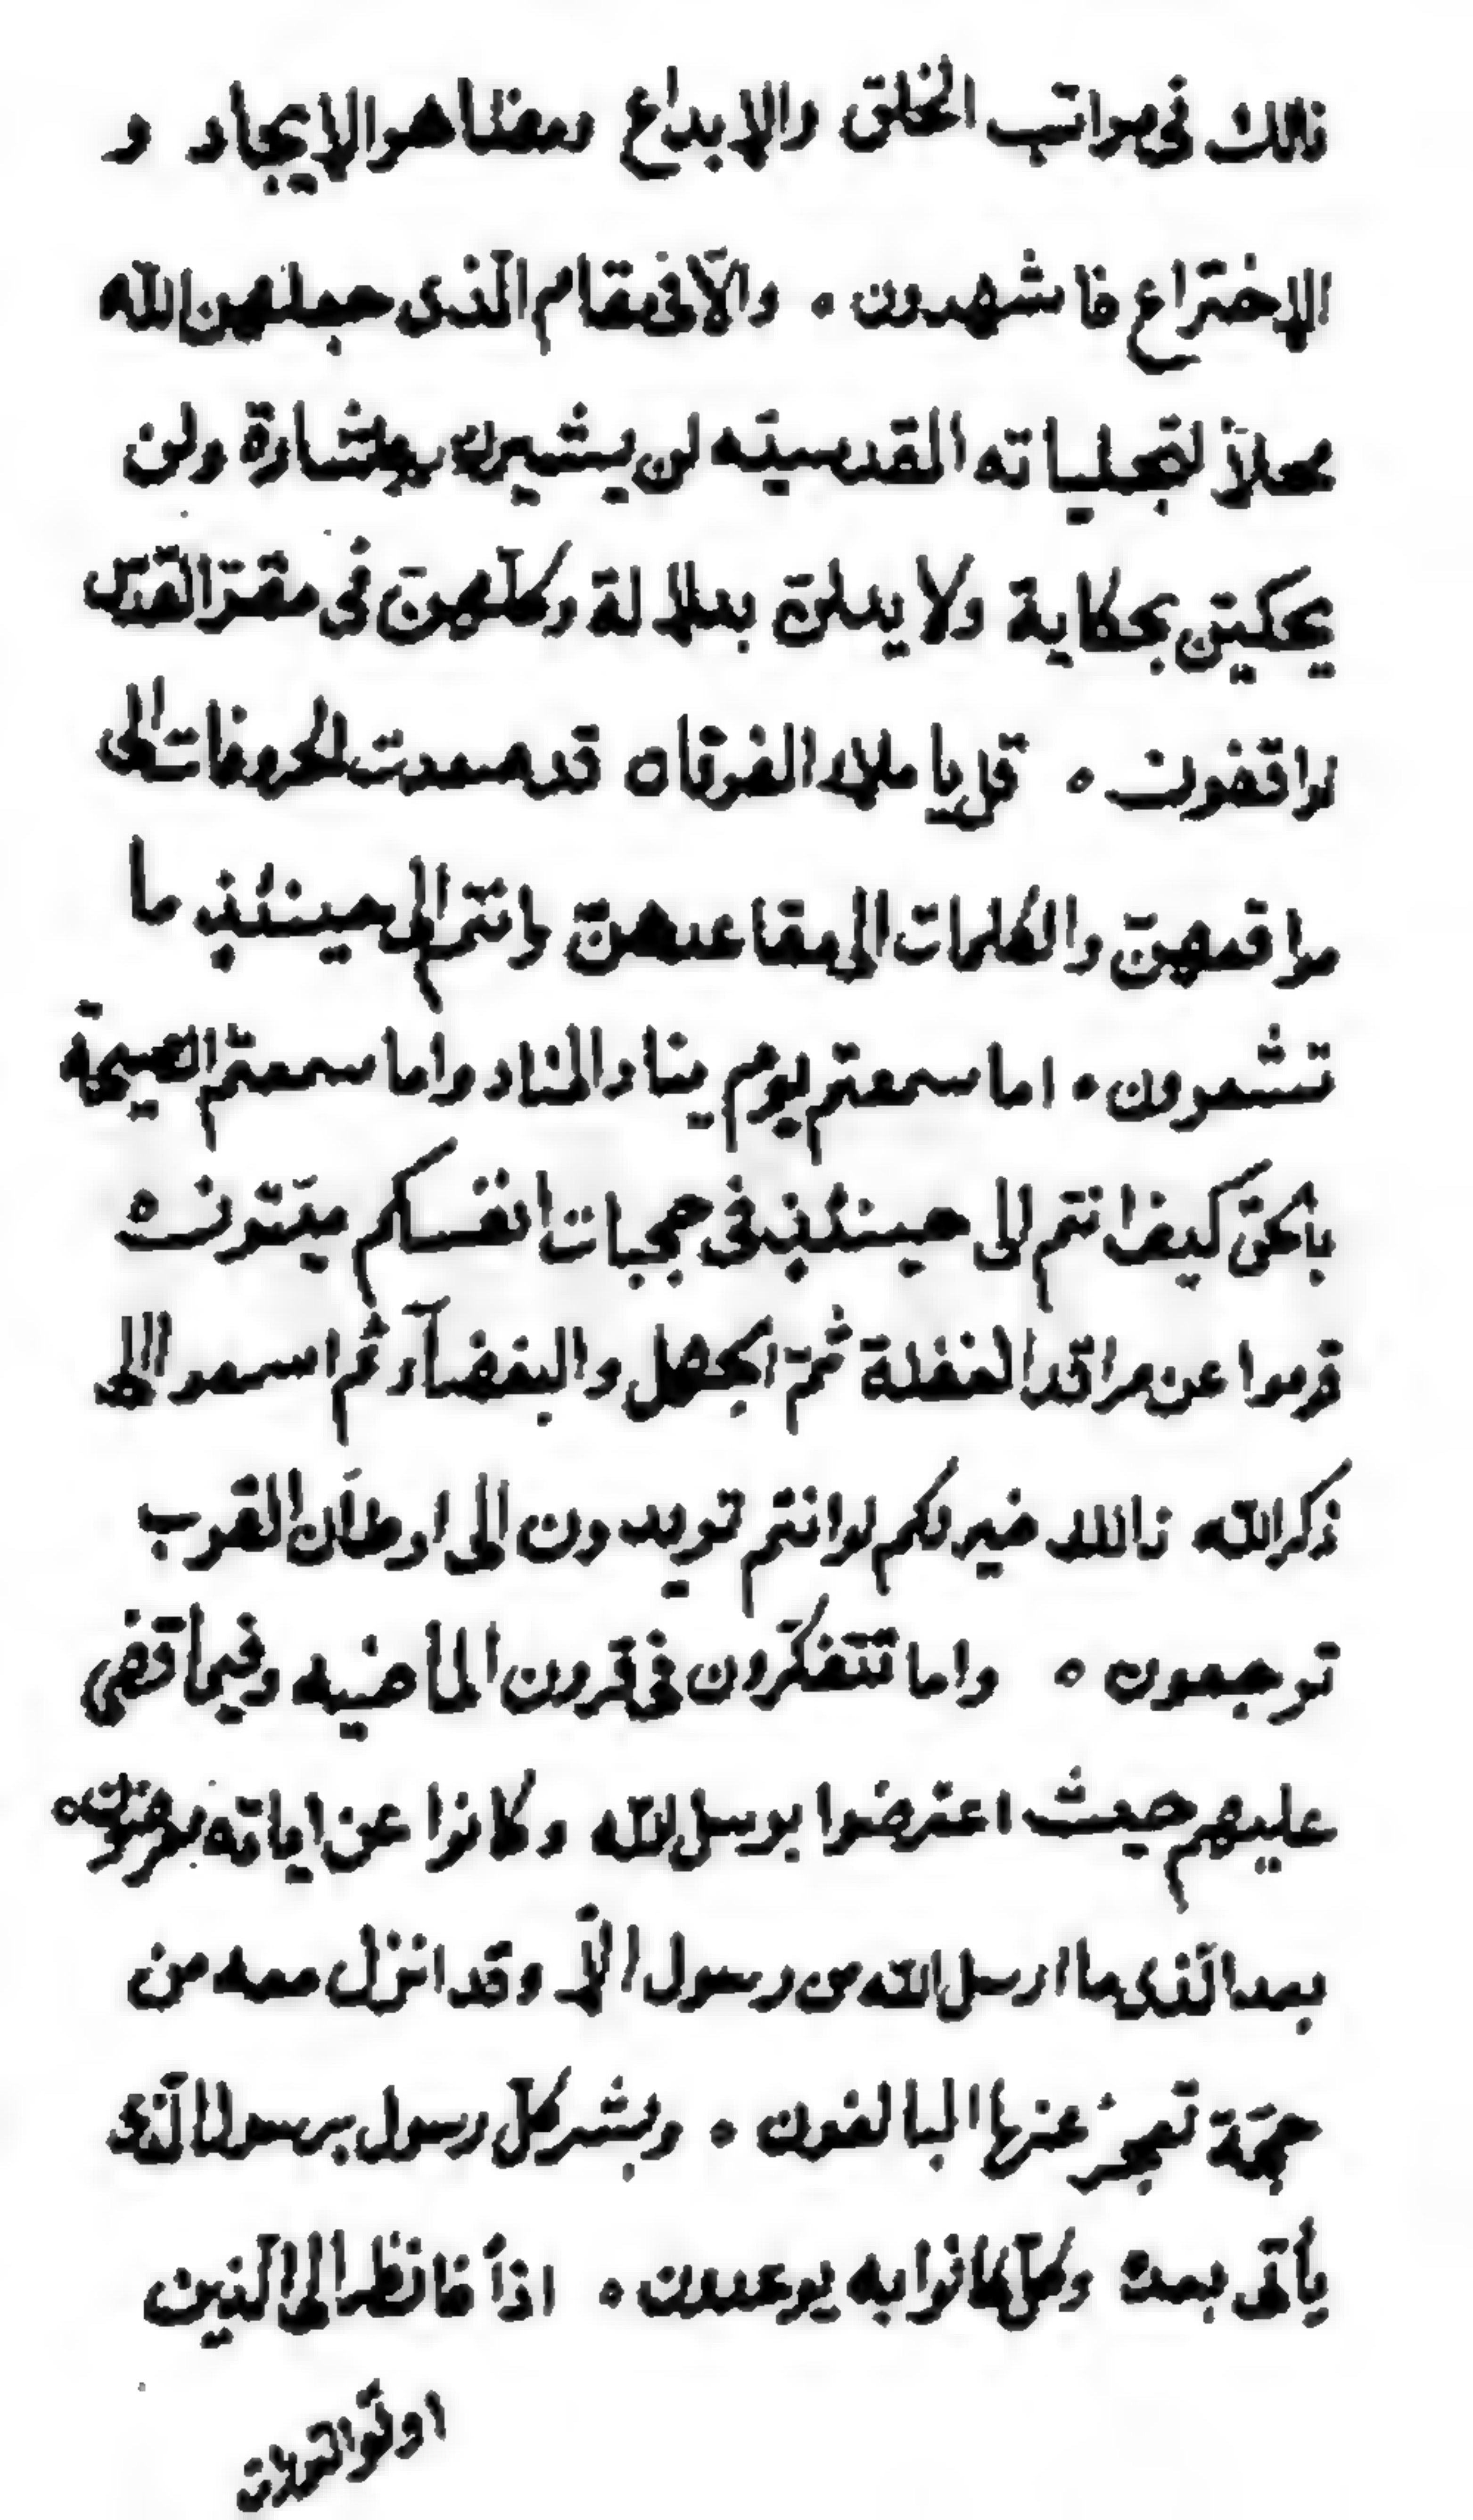 ذلك فى مراتب الخلق والابداع ومظاهر الايجاد و
الاختراع فاشهدون ه والّا فى مقام الّذى جعلهن الله
محلاً لتجلياته القدسيّه لن يشيرن باشارة ولن
يحكين بحكاية ولا يدلنّ بدلالة وكلّهنّ فى مقرّ القدس
لواقفون ه قل يا ملاء الفرقان قد صعدت الحروفات الى
مواقعهنّ والكلمات الى مقاعدهنّ وانتم الى حينئذ ما
تشعرون ه اما سمعتم يوم يناد المناد واما سمعتم الصيحة
بالحق كيف انتم الى حينئذ فى حجبات انفسكم ميّتون ه
قوموا عن مراقد الغفلة ثمّ الجهل والبغضآء ثم اسعوا الى
ذكر الله ذلك خير لكم لو انتم تريدون الى اوطان القرب
ترجعون ه واما تتفكّرون فى قرون الماضيه وفيما قضى
عليهم حيث اعترضوا برسل الله وكانوا عن اياته معرضون ه
بعد الّذى ما ارسل الله من رسول الّا وقد انزل معه من
حجّة تعجز عنها البالغون ه وبشر كلّ رسول برسول الّذى
يأتى بعده وكلّ كانوا به يوعدون ه اذاً فانظر الى الّذين
اوتوا التورات